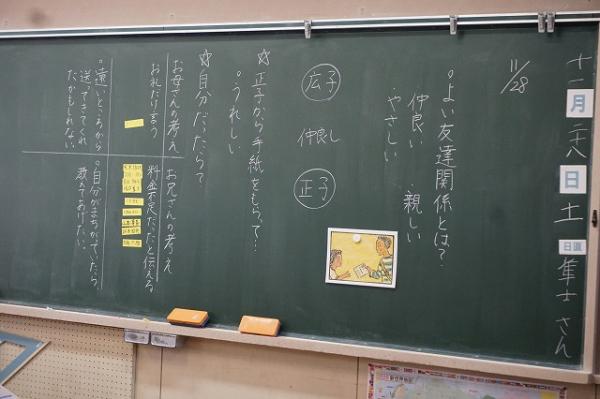 十一月二十八日土
日直 隼士さん
11/28
。よい友達関係とは?
仲良い 親しい
やさしい
広子
仲良し
正子
☆正子から手紙をもらって…
。うれしい
☆自分だったらて
お母さんの考え
お礼だけ言う
。遠いところから
送ってきてくれ
たかもしれない。
お兄さんの考え
料金不足だと伝える
。自分がまちがていたら
教えてあげたい。